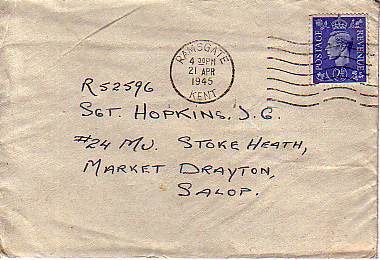 RAMSGATE
4 30PM
21 APR
1945
KENT
POSTAGE
REVENUE
2½
R52596
SGT. HOPKINS, J. G.
#24 MU. STOKE HEATH,
MARKET DRAYTON,
SALOP.